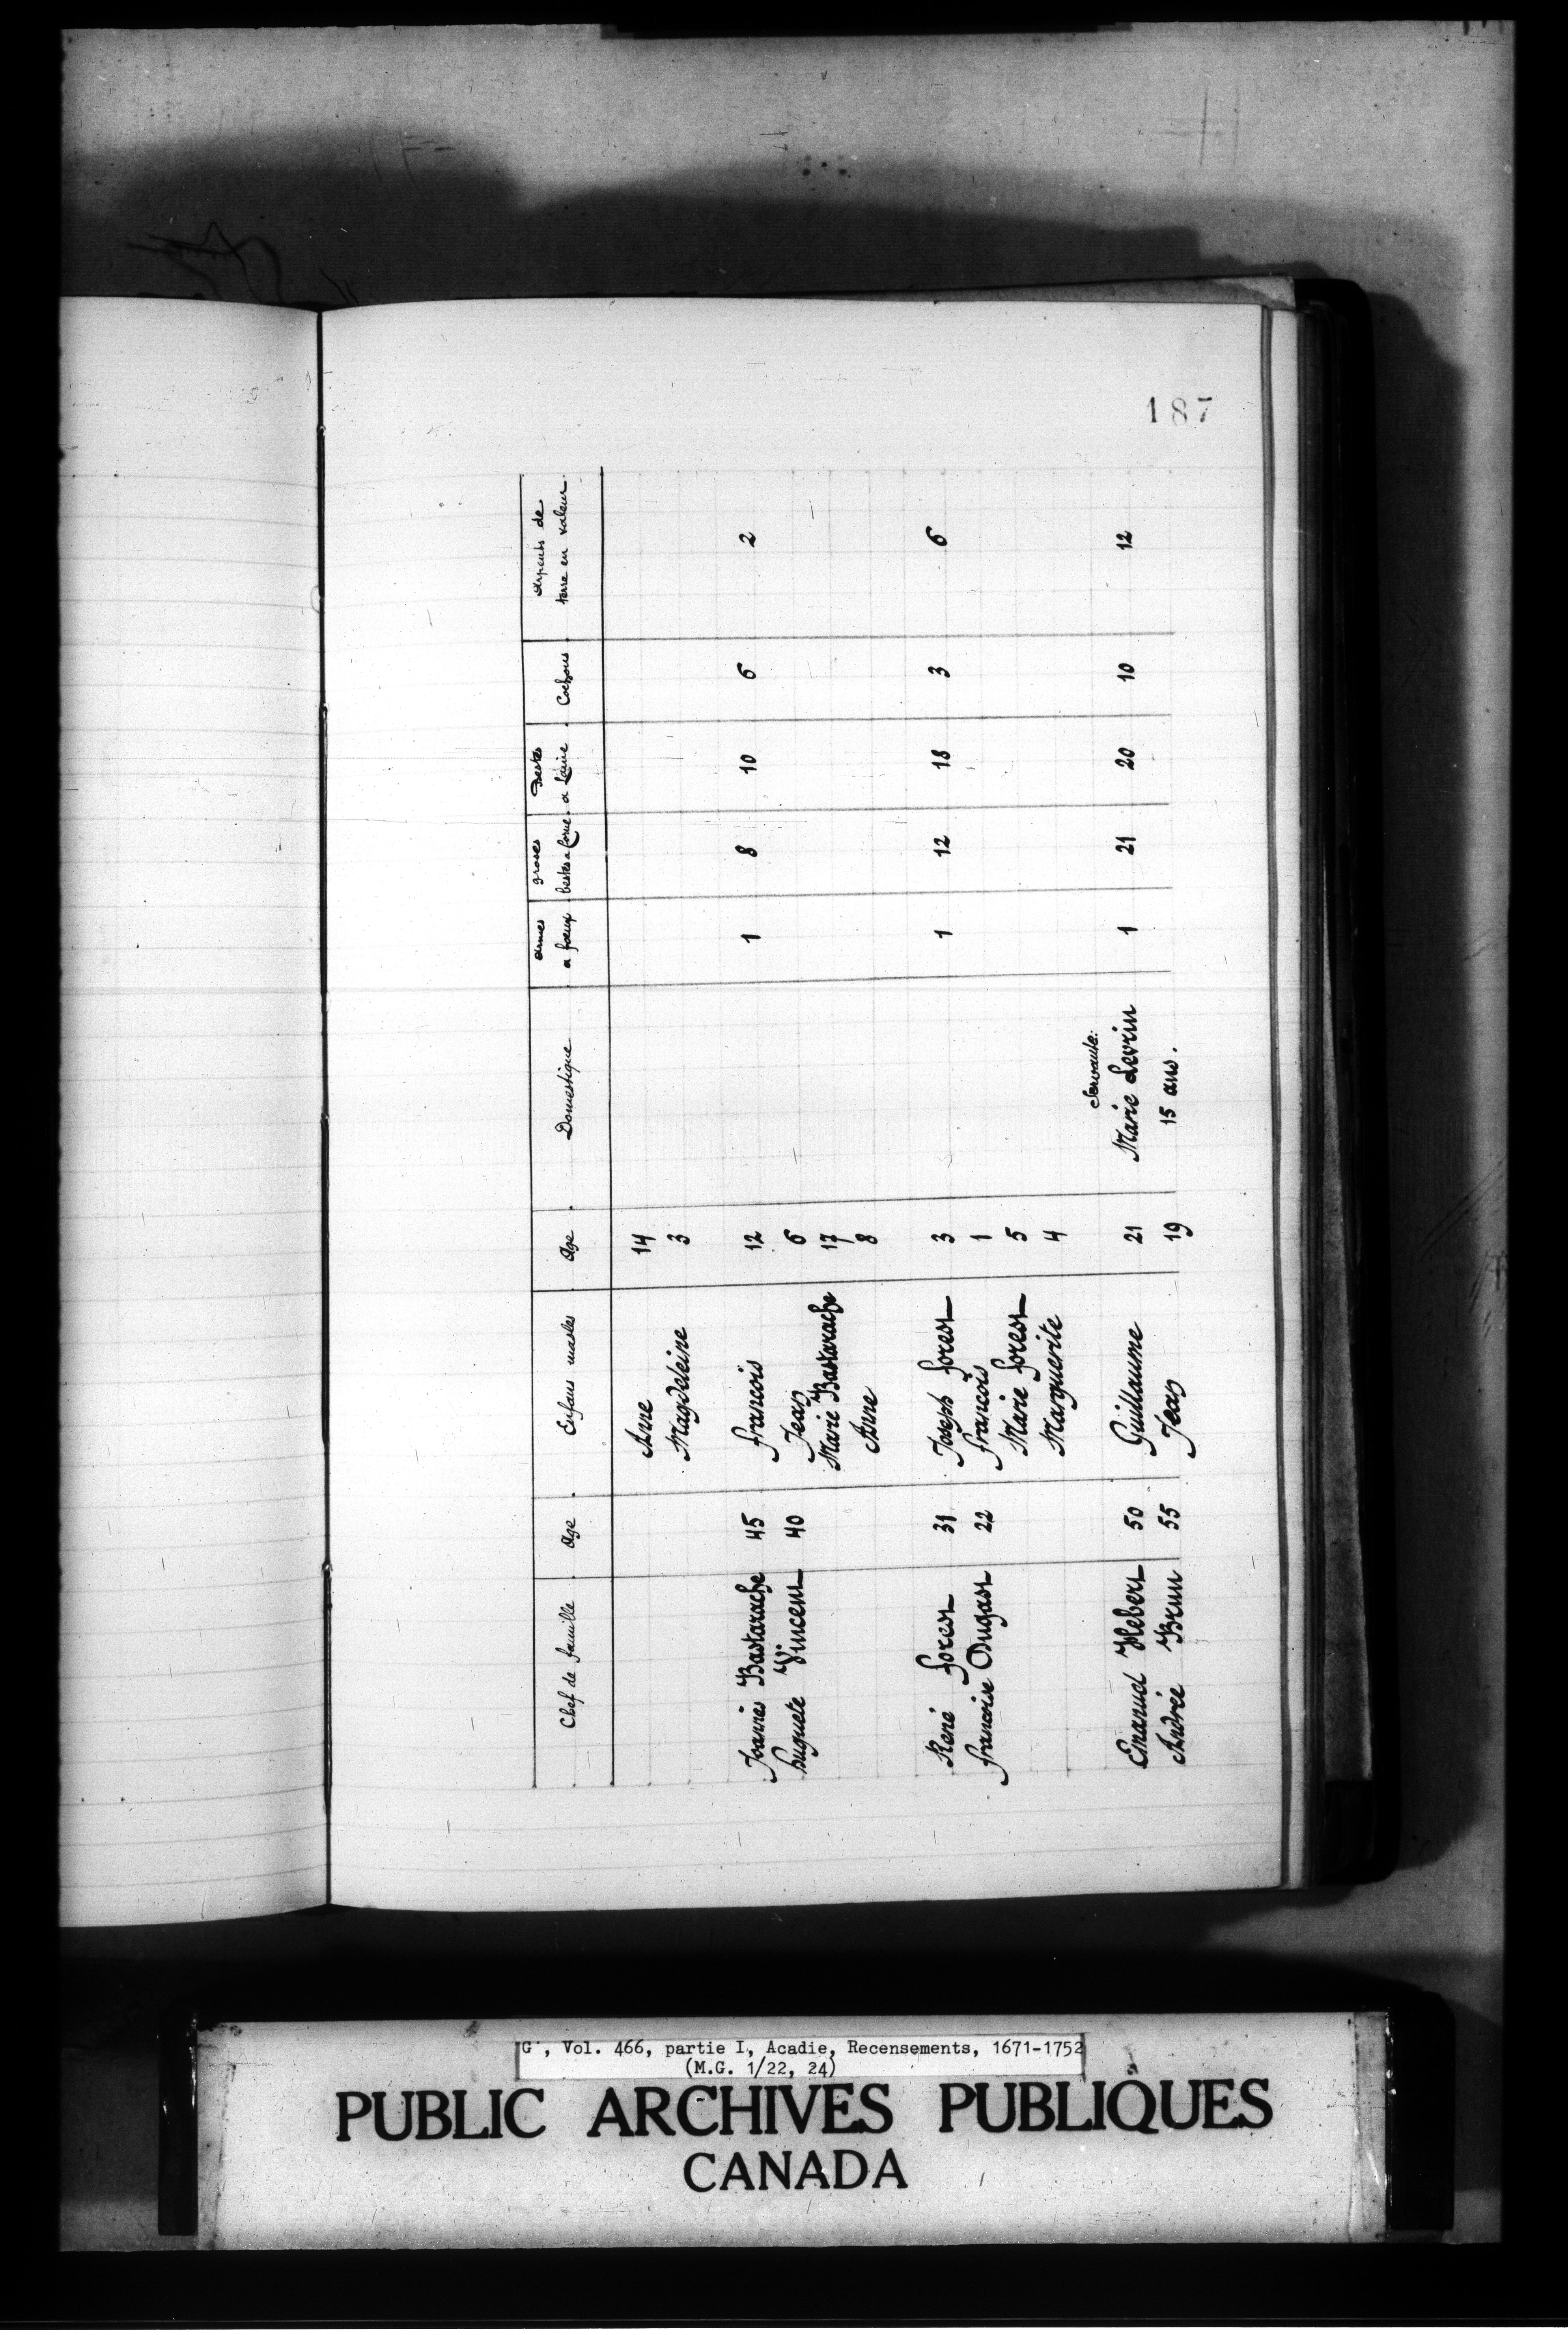 187
Chef de famille | Age | Enfans masles | Age | Domestique | armes a feeux | groses bestes a Corne | Bestes a Laine | Cochons | arpents de terre en valeur
Anne 14
Magdeleine 3
Joannes Bastarache 45 francois 12 1 8 10 6 2
huguete Vincent 40 Jean 6
Marie Bastarache 17
Anne 8
René forest 31 Joseph forest 3 1 12 18 3 6
francoise Dugast 22 francois 1
Marie forest 5
Marguerite 4
Servante:
Emanuel Hebert 50 Guillaume 21 Marie Levrin 1 21 20 10 12
Andrée Brun 55 Jean 19 15 ans.
G', Vol. 466, partie I, Acadie, Recensements, 1671-1752
(M.G. 1/22, 24)
PUBLIC ARCHIVES PUBLIQUES
CANADA